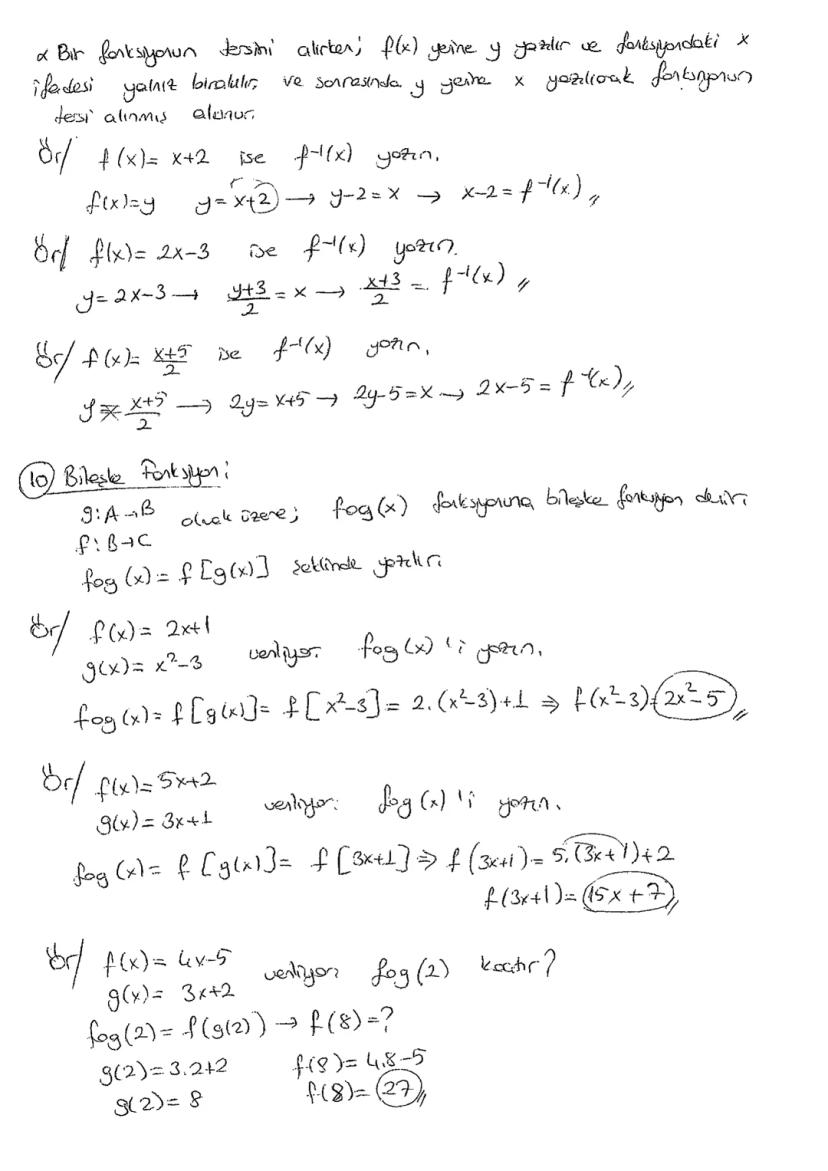 α Bir fonksiyonun tersini alırken; f(x) yerine y yazılır ve fonksiyondaki x
ifadesi yalnız bırakılır, ve sonrasında y yerine x yazılıcak fonksiyonun
tersi alınmış olunur.
Ör/ f(x)= x+2 ise f⁻¹(x) yazın.
f(x)=y y= x+2 → y-2=x → x-2= f⁻¹(x) //
Ör/ f(x)= 2x-3 ise f⁻¹(x) yazın.
y= 2x-3 → (y+3)/2 = x → (x+3)/2 = f⁻¹(x) //
Ör/ f(x)= (x+5)/2 ise f⁻¹(x) yazın.
y = (x+5)/2 → 2y= x+5 → 2y-5=x → 2x-5 = f⁻¹(x) //
10) Bileşke Fonksiyon:
g:A→B olmak üzere; fog(x) fonksiyonuna bileşke fonksiyon denir.
f:B→C
fog(x)= f[g(x)] şeklinde yazılır.
Ör/ f(x)= 2x+1
g(x)= x²-3 veriliyor. fog(x)'i yazın.
fog(x)= f[g(x)]= f[x²-3]= 2.(x²-3)+1 ⇒ f(x²-3)= 2x²-5 //
Ör/ f(x)= 5x+2
g(x)= 3x+1 veriliyor. fog(x)'i yazın.
fog(x)= f[g(x)]= f[3x+1] ⇒ f(3x+1)= 5.(3x+1)+2
f(3x+1)= 15x+7 //
Ör/ f(x)= 4x-5
g(x)= 3x+2 veriliyor. fog(2) kaçtır?
fog(2)= f(g(2)) → f(8)=?
g(2)=3.2+2 f(8)= 4.8-5
g(2)= 8 f(8)= 27 //